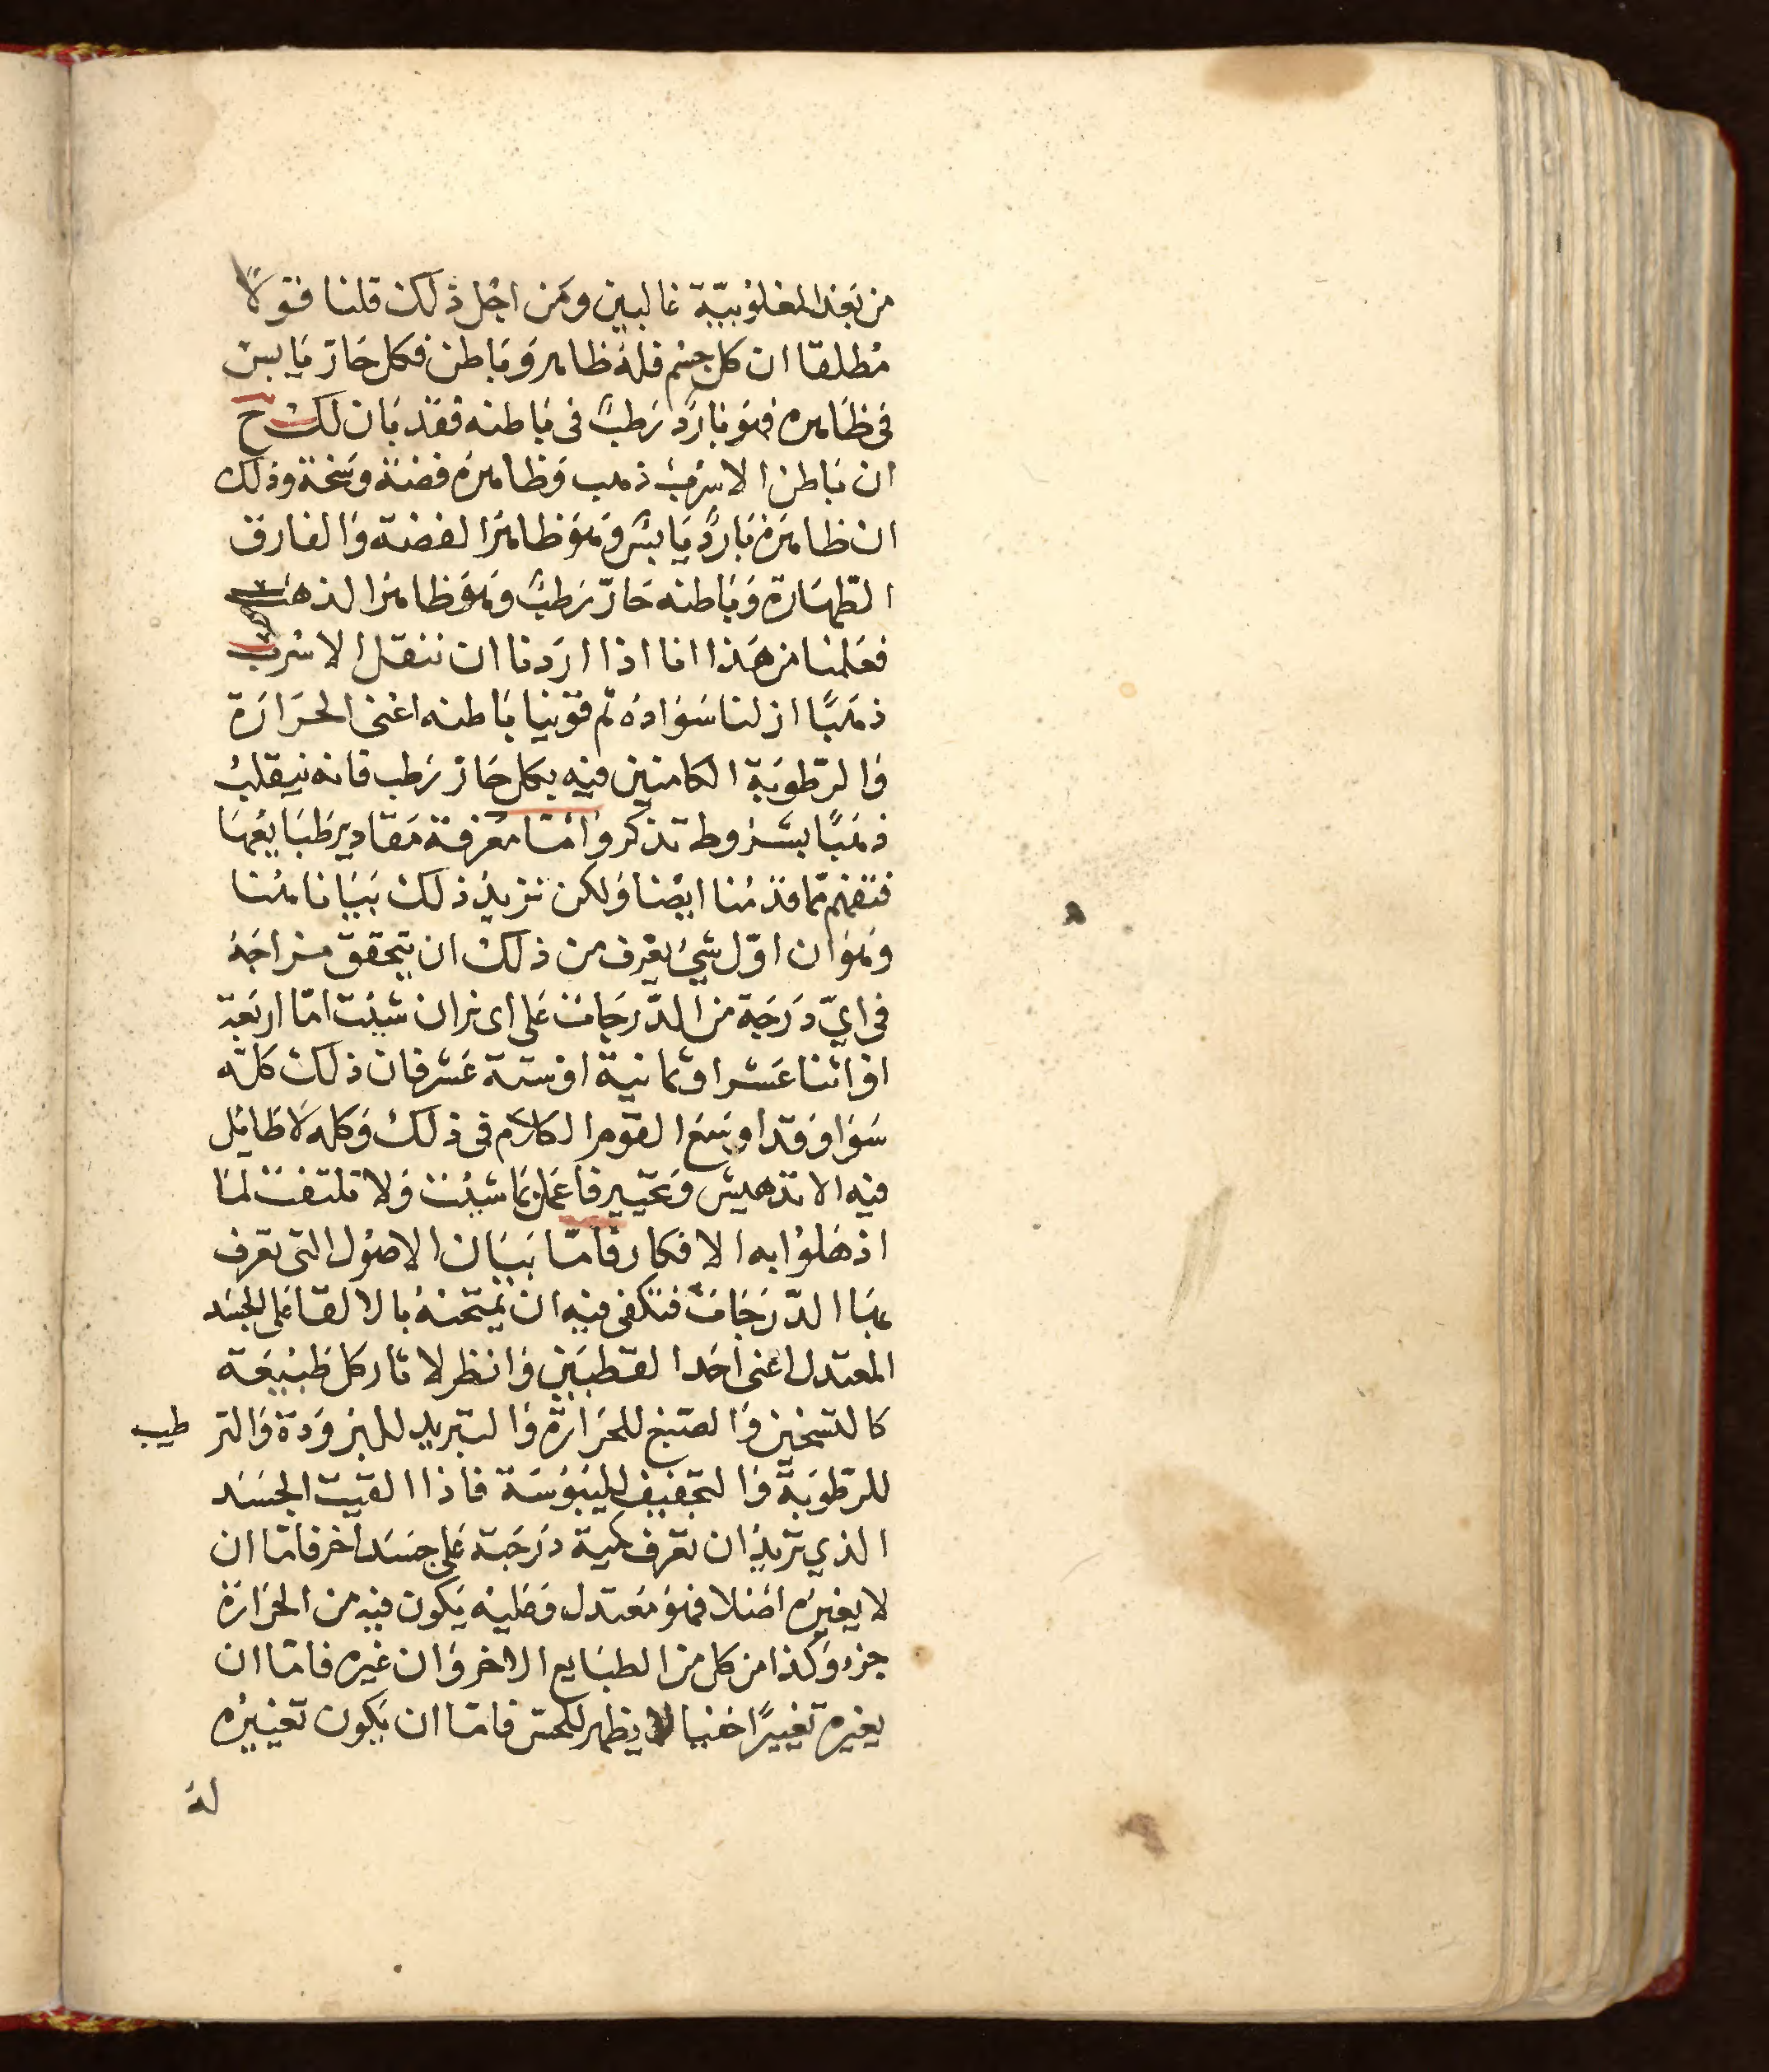 من بعد المغلوبية غالبين ومن اجل ذلك قلنا قولاً
مطلقا ان كل جسم فله ظاهر وباطن فكل حارّ يابس
في ظاهره فهو بارد رطب في باطنه فقد بان لك ح
ان باطن الاسرب ذهب وظاهره فضة وسخة وذلك
ان ظاهره بارد يابس وهو ظاهر الفضة والفارق
الطهارة وباطنه حارّ رطب وهو ظاهر الذهب
فعلمنا من هذا انا اذا اردنا ان ننقل الاسرب
ذهبًا ازلنا سواده ثم قوينا باطنه اعنى الحرارة
والرّطوبة الكامنين فيه بكل حارّ رطب فانه ينقلب
ذهبًا بشروط تذكر وامّا معرفة مقادير طبايعها
فتفهم مما قدمنا ايضا ولكن نزيد ذلك بيانا هنا
وهو ان اوّل شيء يعرف من ذلك ان يتحقق مزاجه
في ايّ درجة من الدّرجات على اى نران شئت امّا اربعة
او اثنا عشر او ثمانية او ستة عشر فان ذلك كله
سوا وقد اوسع القوم الكلام في ذلك وكله لا طايل
فيه الا تدهيش وتحيير فاعمل بما شئت ولا تلتفت لما
اذهلوا به الافكار فامّا بيان الاصول التى تعرف
بها الدّرجات فتكفى فيه ان تمتحنه بالالقا على الجسد
المعتدل اعنى احد القطبين وانظر لاثار كل طبيعة
كالتسخين والصبغ للحرارة والتبريد للبرودة والترطيب
للرّطوبة والتجفيف لليبوسة فاذا القيت الجسد
الذي تريد ان تعرف كمية درجته على جسد اخر فامّا ان
لا يغيره اصلا فهو معتدل وعليه يكون فيه من الحرارة
جزء وكذا من كل من الطبايع الاخر وان غيره فامّا ان
يغيره تغييرًا خفيا لا يظهر للحس فامّا ان يكون تغييره
له